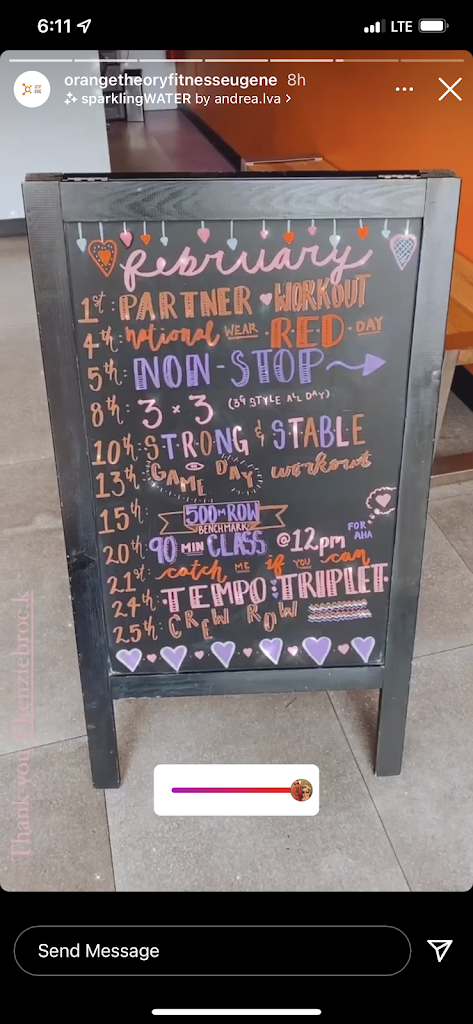 6:11
LTE
orangetheoryfitnesseugene 8h
sparklingWATER by andrea.lva >
february
1st: PARTNER WORKOUT
4th: national WEAR RED DAY
5th: NON-STOP
8th: 3 x 3 (3G STYLE ALL DAY)
10th: STRONG & STABLE
13th: GAME DAY workout
15th: 500M ROW
BENCHMARK
20th: 90 MIN CLASS @12pm FOR AHA
21st: catch ME if YOU can
24th: TEMPO: TRIPLET
25th: CREW ROW
Thank you @kenziebroc.k
Send Message